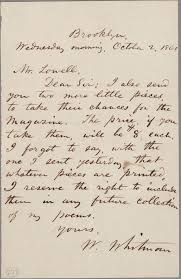 Brooklyn
Wednesday morning, October 2, 1861
Mr. Lowell,
Dear Sir; I also send
you two more little pieces,
to take their chances for the
Magazine. The price, if you
take them, will be $8, each.
I forgot to say, with the
one I sent yesterday, that
whatever pieces are printed,
I reserve the right to include
them in any future collection
of my poems.
Yours,
W. Whitman